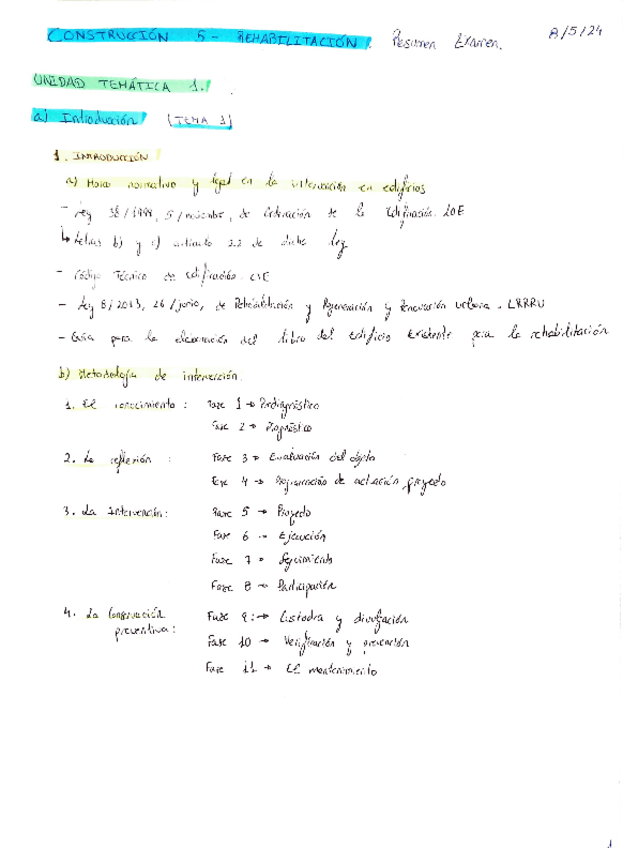 CONSTRUCCIÓN 5 - REHABILITACIÓN. Resumen Examen. 8/5/24
UNIDAD TEMÁTICA 1.
a) Introducción (TEMA 1)
1. INTRODUCCIÓN
a) Marco normativo y legal en la intervención en edificios
- Ley 38/1999, 5/noviembre, de Ordenación de la Edificación. LOE
↳ Letras b) y c) artículo 2.2 de dicha ley
- Código Técnico de Edificación. CTE
- Ley 8/2013, 26/junio, de Rehabilitación y Regeneración y Renovación urbana. LRRRU
- Guía para la elaboración del libro del Edificio Existente para la rehabilitación
b) Metodología de intervención.
1. El conocimiento: Fase 1 → Prediagnóstico
Fase 2 → Diagnóstico
2. La reflexión: Fase 3 → Evaluación del objeto
Fase 4 → Programación de actuación proyecto
3. La Intervención: Fase 5 → Proyecto
Fase 6 → Ejecución
Fase 7 → Seguimiento
Fase 8 → Participación
4. La Conservación Fase 9: → Custodia y divulgación
preventiva: Fase 10 → Verificación y prevención
Fase 11 → El mantenimiento
1